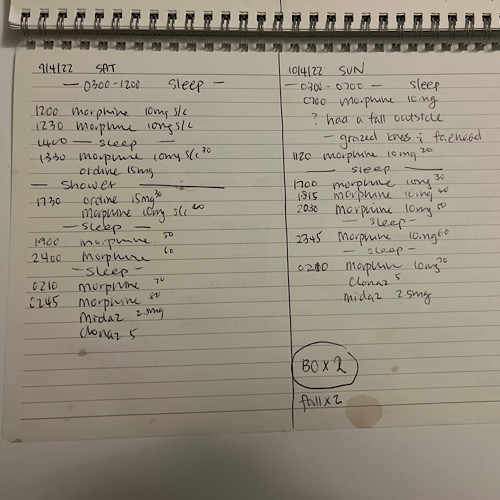 9/4/22 SAT
— 0300-1200 Sleep —
1200 morphine 10mg s/c
1230 morphine 10mg s/c
1400 — sleep —
1330 morphine 10mg s/c 30
ordine 15mg
— Shower —
1730 ordine 15mg 30
morphine 10mg s/c 40
— Sleep —
1900 morphine 50
2400 morphine 60
— Sleep —
0210 morphine 70
0245 morphine 80
Midaz 2.5mg
Clonaz 5
10/4/22 SUN
— 0300 - 0700 — sleep
0700 morphine 10mg
? had a fall outside
— grazed knees & forehead
1120 morphine 10mg 20
— sleep —
1700 morphine 10mg 30
1815 morphine 10mg
2030 morphine 10mg 50
— Sleep —
2345 morphine 10mg 60
— Sleep —
morphine 10mg 70
Clonaz 5
Midaz 2.5mg
BO x 2
fall x 2